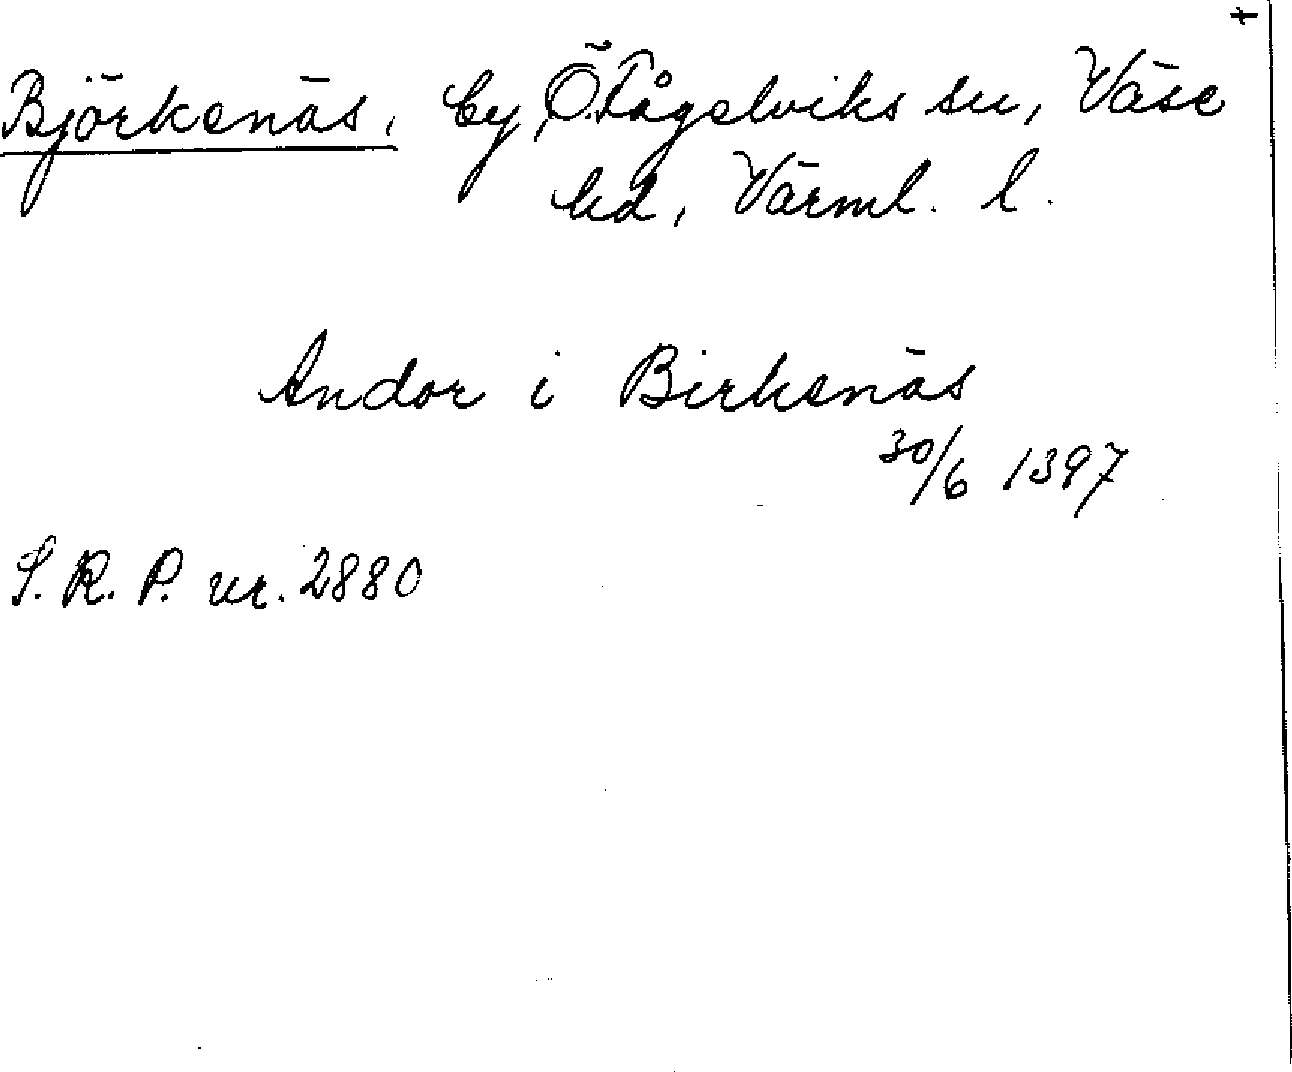 +
Björkenäs, by, Ö. Fågelviks sn, Väse
hd, Värml. l.
Andor i Birkenäs
30/6 1397
S. R. P. nr. 2880